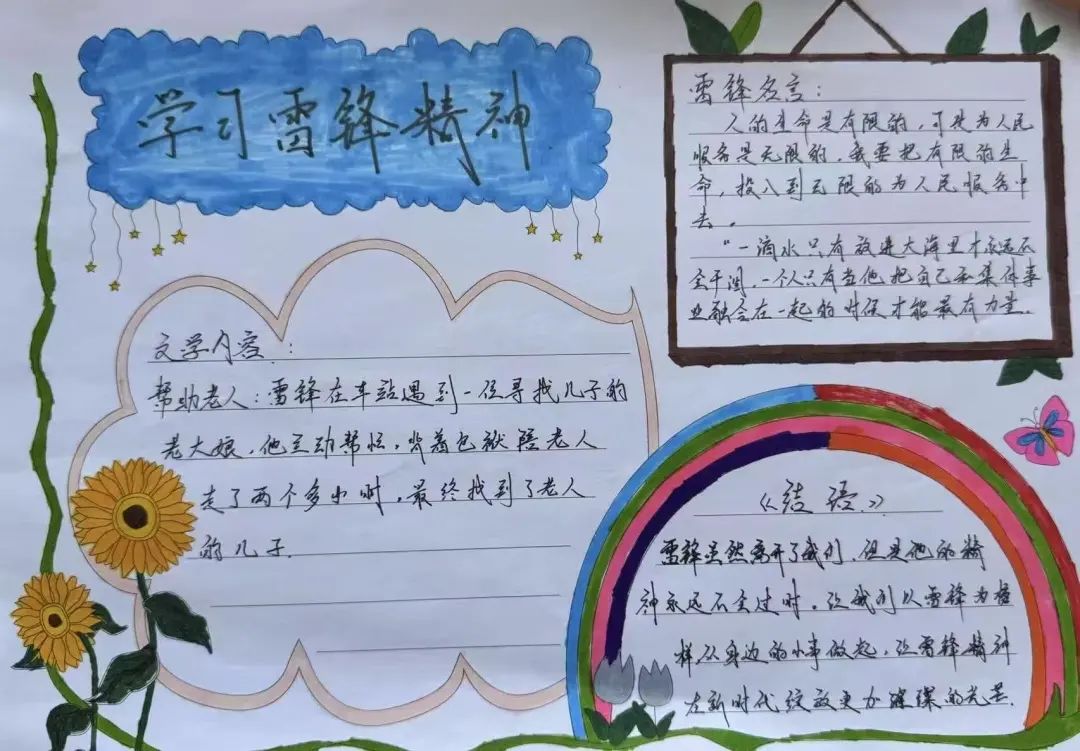 学习雷锋精神
雷锋名言：
人的生命是有限的，可是为人民
服务是无限的，我要把有限的生
命，投入到无限的为人民服务中
去。
“一滴水只有放进大海里才永远不
会干涸，一个人只有当他把自己和集体事
业融合在一起的时候才能最有力量.
文学内容：
帮助老人：雷锋在车站遇到一位寻找儿子的
老大娘，他主动帮忙，背着包袱陪老人
走了两个多小时，最终找到了老人
的儿子.
《结语》
雷锋虽然离开了我们，但是他的精
神永远不会过时。让我们以雷锋为榜
样，从身边的小事做起，让雷锋精神
在新时代绽放更加璀璨的光芒.